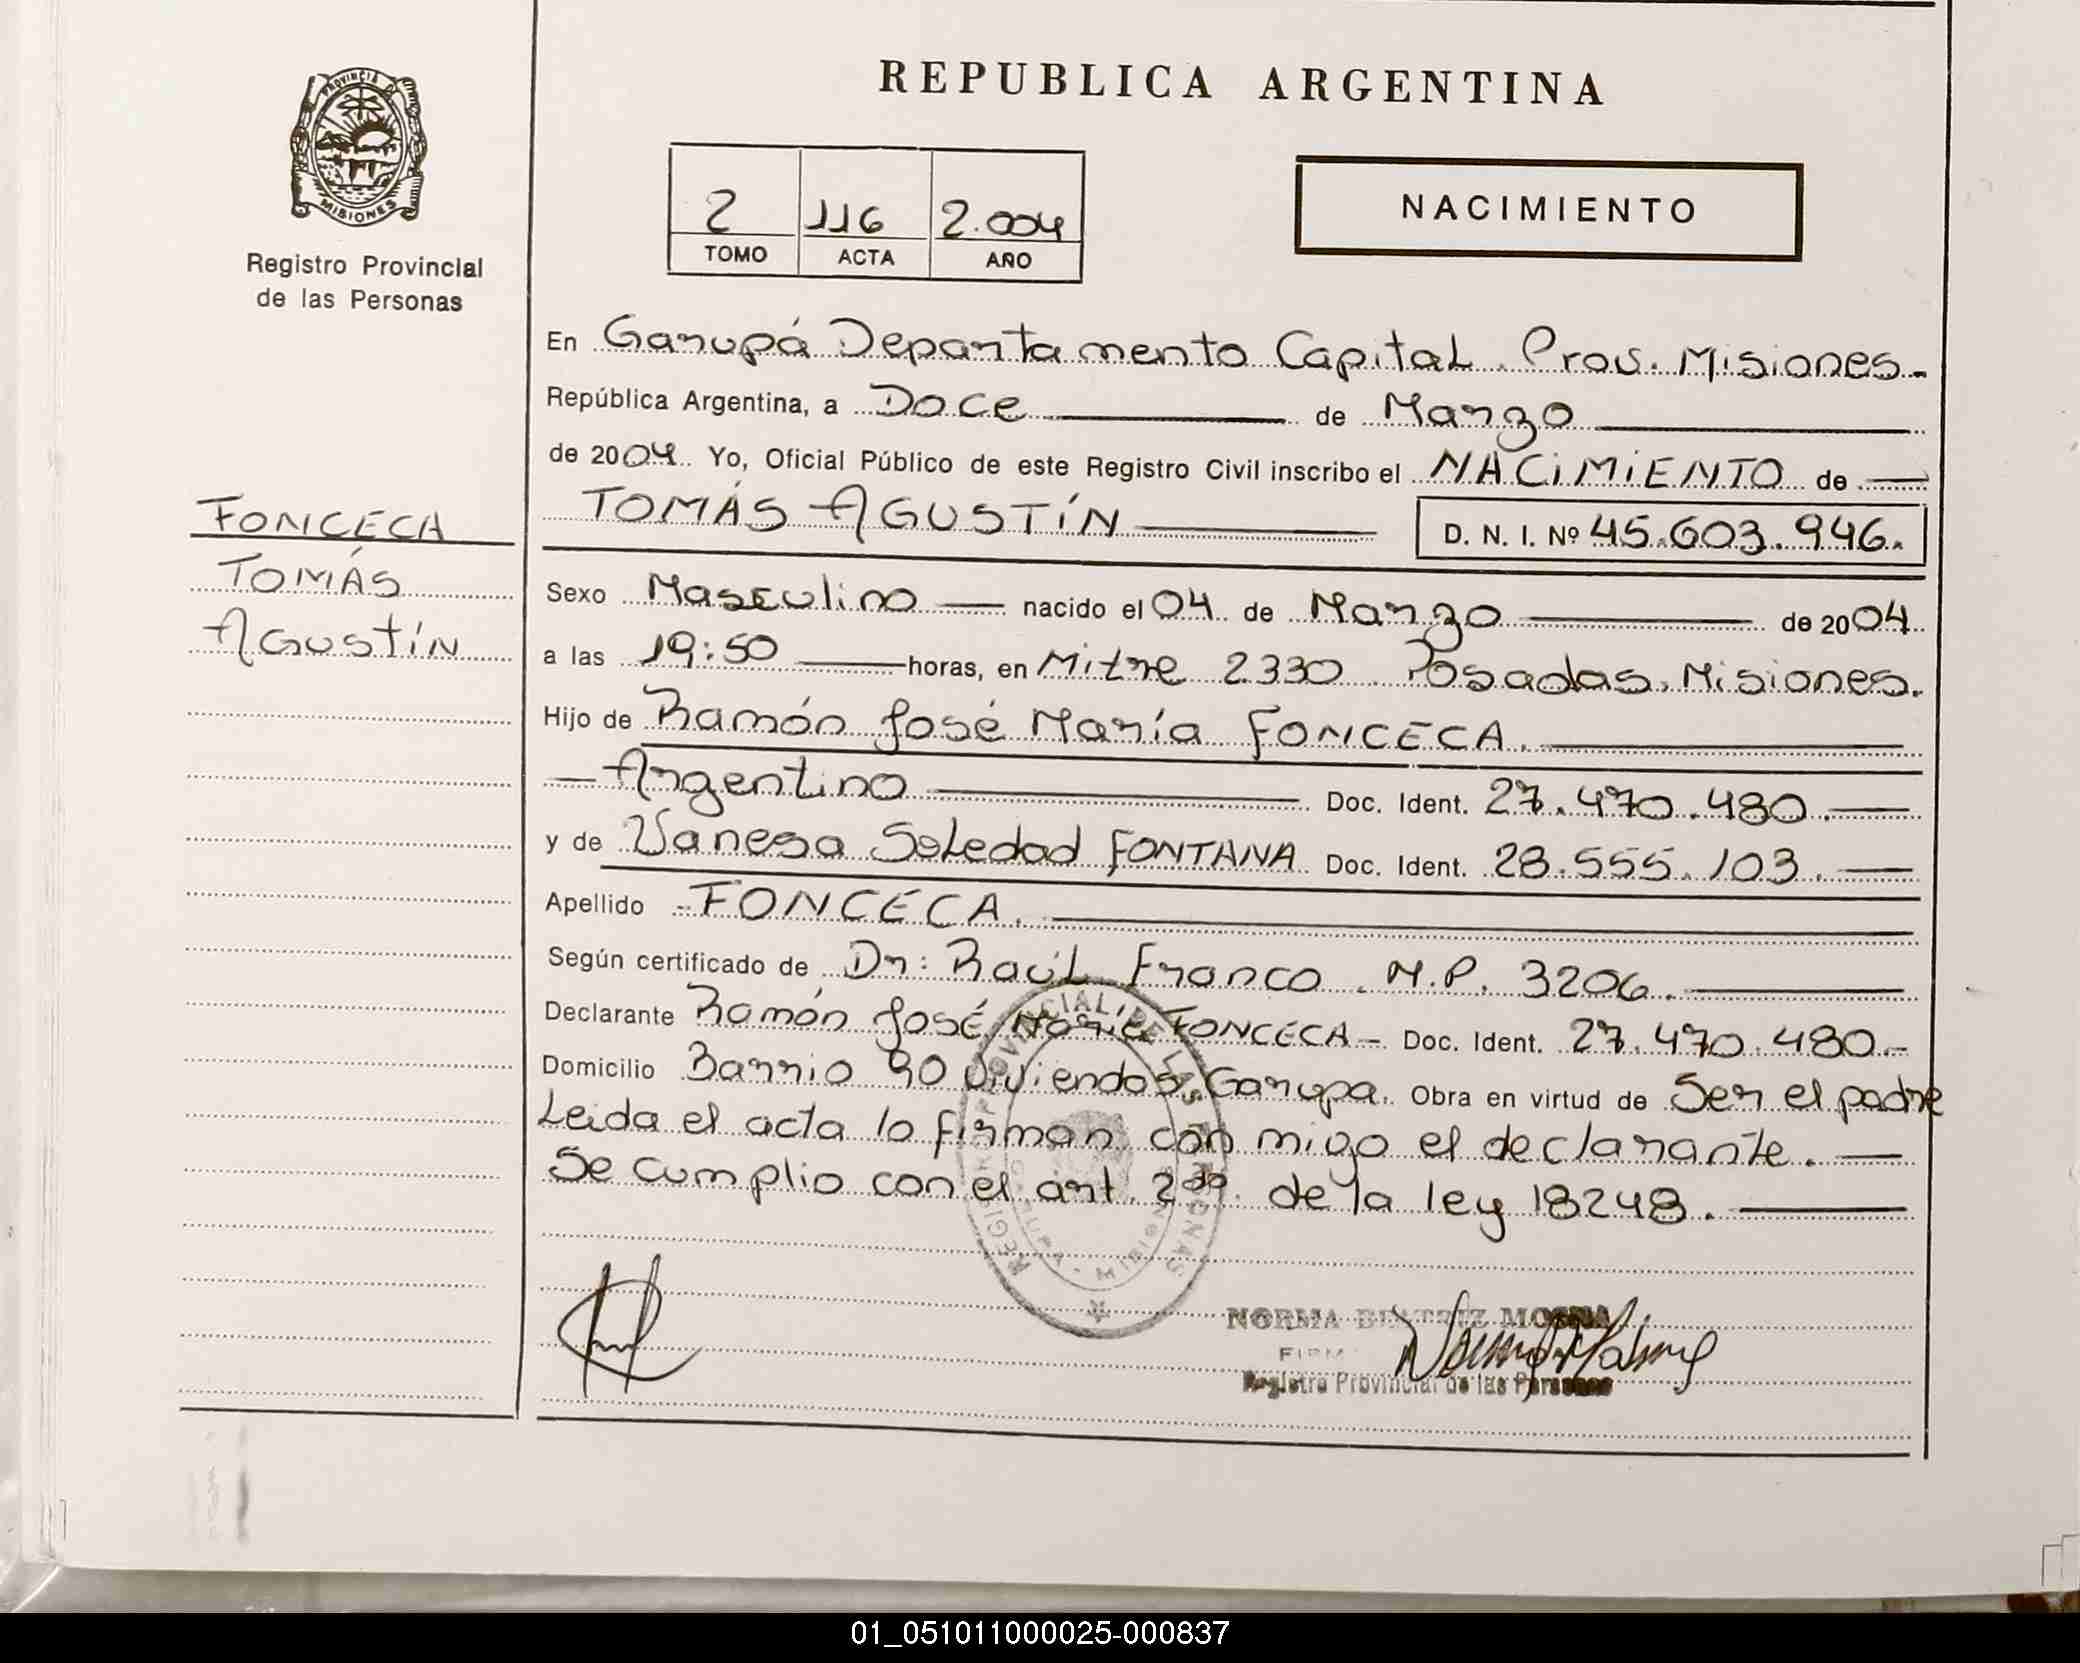 REPUBLICA ARGENTINA
PROVINCIA DE
MISIONES
Registro Provincial
de las Personas
2 116 2.004
TOMO ACTA AÑO
NACIMIENTO
En Garupá Departamento Capital. Prov. Misiones.-
República Argentina, a Doce de Marzo
de 2004. Yo, Oficial Público de este Registro Civil inscribo el NACIMIENTO de
TOMÁS AGUSTÍN D. N. I. Nº 45.603.946.
FONCECA
TOMÁS
AGUSTÍN
Sexo Masculino nacido el 04 de Marzo de 2004.
a las 19:50 horas, en Mitre 2330. Posadas, Misiones.
Hijo de Ramón José María FONCECA.
Argentino Doc. Ident. 27.470.480.
y de Vanesa Soledad FONTANA Doc. Ident. 28.555.103.
Apellido - FONCECA.
Según certificado de Dr: Raúl Franco. M.P. 3206.
Declarante Ramón José María FONCECA - Doc. Ident. 27.470.480.-
Domicilio Barrio 90 Viviendas, Garupa. Obra en virtud de Ser el padre
Leida el acta lo firman con migo el declarante.
Se cumplio con el art. 2do. de la ley 18248.
REGISTRO PROVINCIAL DE LAS PERSONAS
GARUPA - MISIONES
NORMA BEATRIZ
Registro Provincial de las Personas
01_051011000025-000837